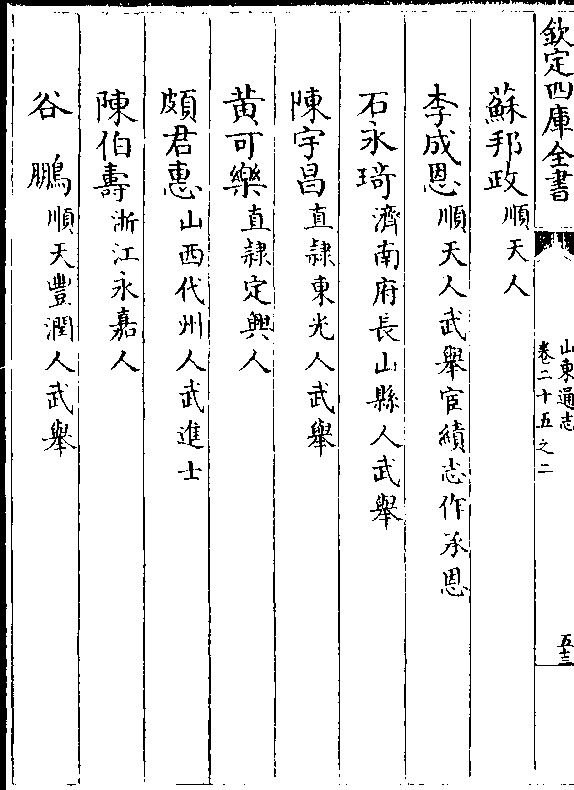 欽定四庫全書
山東通志
卷二十五之二
五十三
蘇邦政順天人
李成恩順天人武舉宦績志作承恩
石永琦濟南府長山縣人武舉
陳宇昌直隸東光人武舉
黃可樂直隸定興人
頗君惠山西代州人武進士
陳伯壽浙江永嘉人
谷鵬順天豐潤人武舉